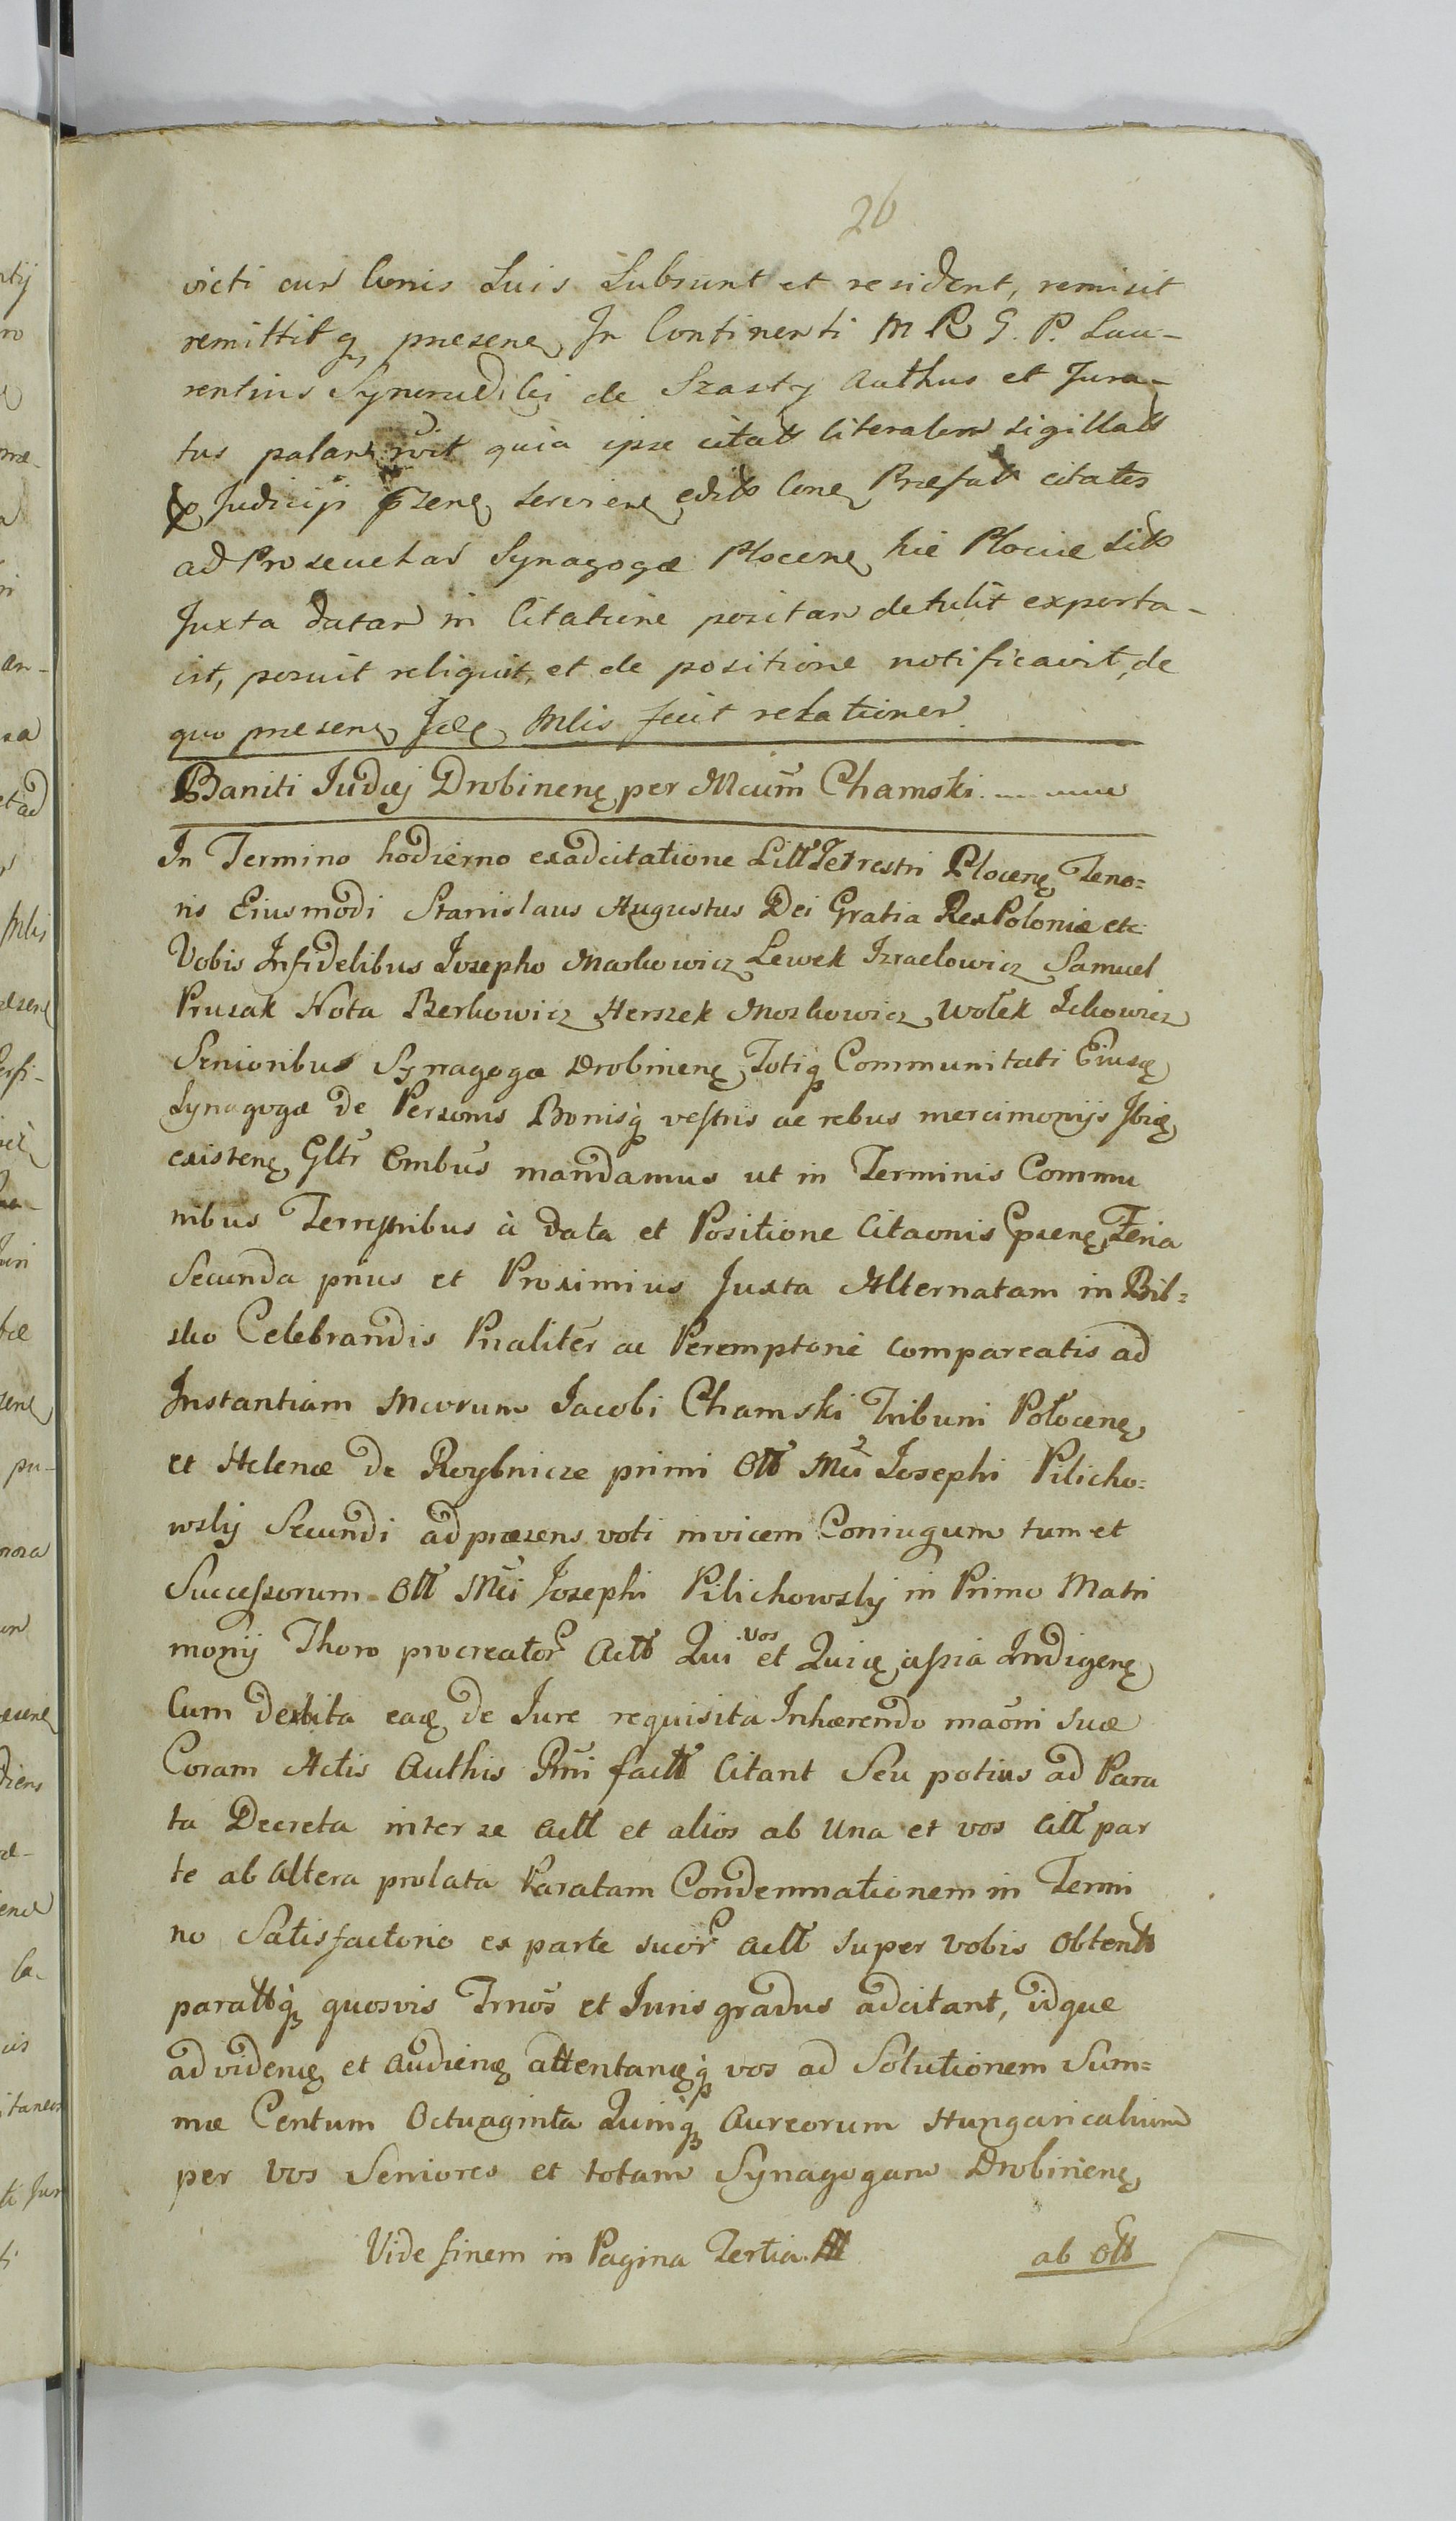 26
victi cum bonis Suis Subsunt et resident, remisit
remittitq presene In Continenti M R G. P. Lau-
rentius de Szasty Authus et Jura-
tus palam quia ipse citatt literalem sigillatt
Judicij serviene editt Prefatt citates
ad Proseuchas Synagogæ Plocene hic Plociæ sitt
Juxta datam in Citatione positam detulit exporta-
vit, posuit reliquit, et de positione notificavit, de
quo presene Jdē Mlis fecit relationem
Baniti Iudæj Drobinenę per Mcum Chamski
In Termino hodierno exadcitatione Litt Terrestri Plocenę Teno=
ris Eiusmodi Stanislaus Augustus Dei Gratia Rex Poloniæ etc
Vobis Infidelibus Josepho Markowicz Lewek Izraelowicz Samuel
Prusak Nota Berkowicz Herszek Moszkowicz Wolek Ickowicz
Senioribus Synagogæ Drobinenę Totiq Communitati Eiusę
Synagogæ de Personis Bonisq vestris ac rebus mercimonijs Ibię
existenę Gltr Ombus mandamus ut in Terminis Commu
nibus Terrestribus à data et Positione Citaonis Pseneę Feria
Secunda prius et Proximius Juxta Alternatam in Bil=
sko Celebrandis Pnaliter ac Peremptorie compareatis ad
Instantiam Mcorum Jacobi Chamski Tribuni Polocenę
et Helenæ de Roybnicze primi Ott Mci Josephi Pilicho=
wskij Secundi ad præsens voti invicem Coniugum tum et
Successorum Ott Mci Josephi Pilichowskij in Primo Matri
monij Thoro procreator Actt Qui vos et Quię Indigenę
Cum debita eaę de Jure requisita Inhærendo maoni suæ
Coram Actis Authis factt Citant Seu potius ad Para
ta Decreta inter se actt et alios ab Una et vos citt par
te ab altera prolata Paratam Condemnationem in Termi
no Satisfactorio ex parte suor actt super vobis obtentt
parattq quosvis Trnos et Juris gradus adcitant, idque
ad videnę et audienę attentanęq vos ad Solutionem Sum=
mæ Centum Octuaginta Quinq Aureorum Hungaricalium
per vos Seniores et totam Synagogam Drobinenę
Vide finem in Pagina Tertia
ab Ott